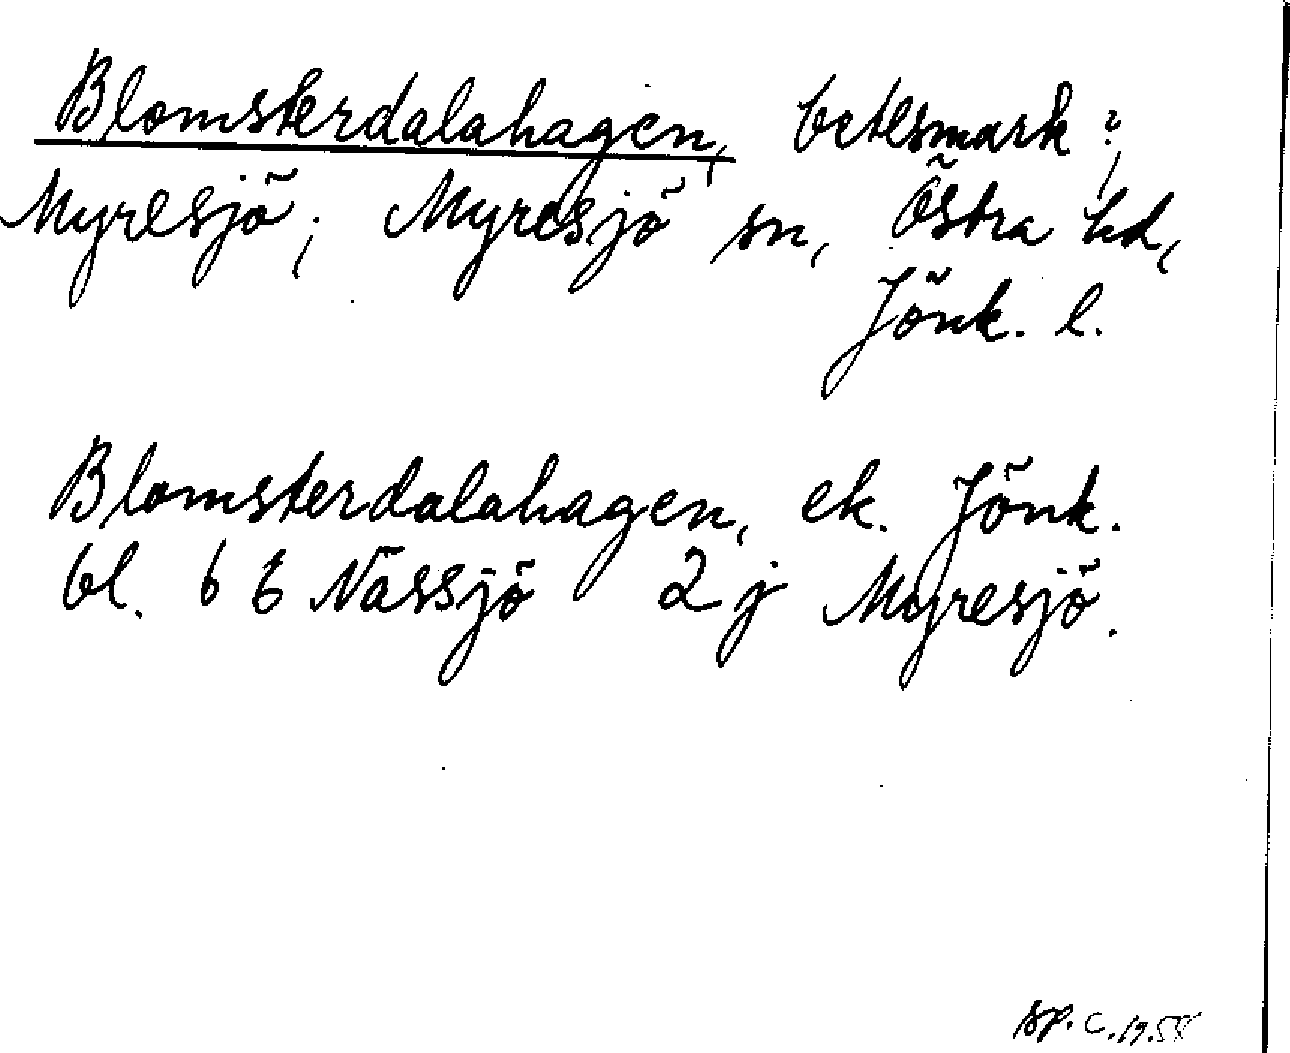 Blomsterdalahagen, betesmark ?,
Myresjö; Myresjö sn, Östra hd,
Jönk. l.
Blomsterdalahagen, ek. Jönk.
bl. 6 b Nässjö 2 j Myresjö.